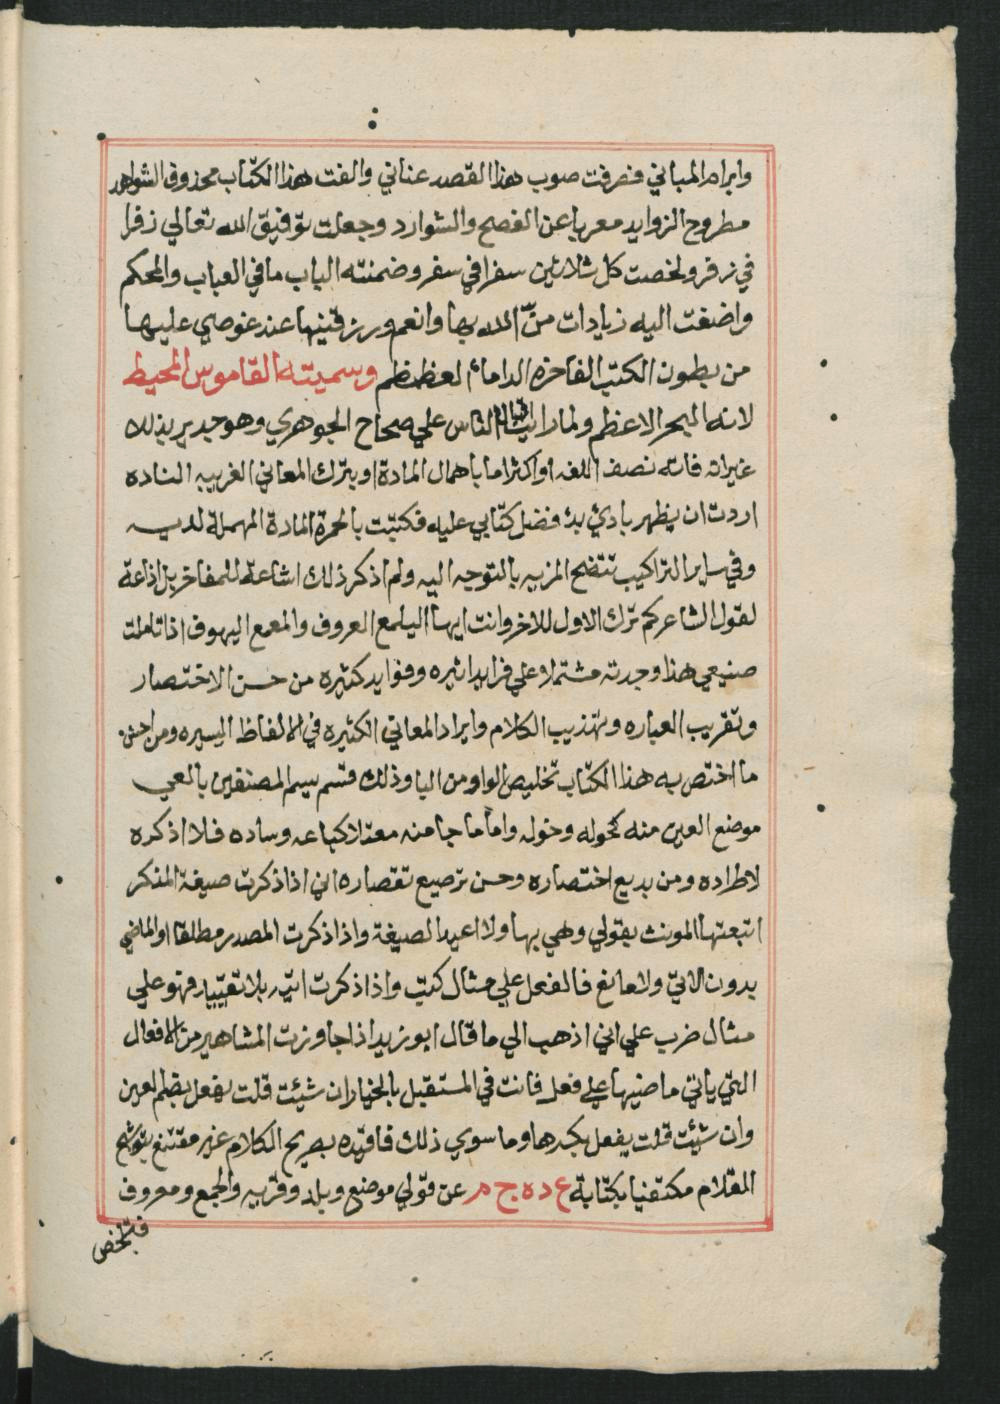 وابرام المباني فصرفت صوب هذا القصد عناني والفت هذا الكتاب محذوف الشواهد
مطروح الزوايد معربا عن الفصح والشوارد وجعلت بتوفيق الله تعالي زفرا
في زفر ولخصت كل ثلاثين سفرا في سفر وضمنته الباب ما في العباب والمحكم
واضفت اليه زيادات منّ الله بها وانعم ورزقنيها عند غوصي عليها
من بطون الكتب الفاخره الداماء لعظمظم وسميته القاموس المحيط
لانه البحر الاعظم ولما رايت اقبال الناس علي صحاح الجوهري وهو جدير بذلك
غير انه فاته نصف اللغه او اكثر اما باهمال المادة او بترك المعاني الغريبه الناده
اردت ان يظهر بادئ بدء فضل كتابي عليه فكتبت بالحمرة المادة المهملة لديه
وفي ساير التراكيب تتضح المزيه بالتوجه اليه ولم اذكر ذلك اشاعة للمفاخر بل اذاعة
لقول الشاعر كم ترك الاول للاخر وانت ايها اليلمع العروف والمعمع اليهوف اذا تاملت
صنيعي هذا وجدته مشتملا علي فرايد اثيره وفوايد كثيره من حسن الاختصار
وتقريب العباره وتهذيب الكلام وايراد المعاني الكثيره في الالفاظ اليسيره ومن احسن
ما اختص به هذا الكتاب تخليص الواو من اليا وذلك قسم يسم المصنفين بالعي
موضع العين منه كجوله وخوله واما ما جا منه معتلا كباعه وساده فلا اذكره
لاطراده ومن بديع اختصاره وحسن ترصيع تقصاره اني اذا ذكرت صيغة المذكر
اتبعتها المونث بقولي وهي بها ولا اعيد الصيغة واذا ذكرت المصدر مطلقا او الماضي
بدون الاتي ولا مانع فالفعل علي مثال كتب واذا ذكرت اتيه بلا تقييد فهو علي
مثال ضرب علي اني اذهب الي ما قال ابو زيد اذا جاوزت المشاهير من الافعال
التي ياتي ماضيها علي فعل فانت في المستقبل بالخيار ان شئت قلت يفعل بضم العين
وان شئت قلت يفعل بكسرها وما سوي ذلك فاقيده بصريح الكلام غير مقتنع بتوشيح
القلام مكتفيا بكتابة ع د ه ج م عن قولي موضع وبلد وقريه والجمع ومعروف
فتلخص